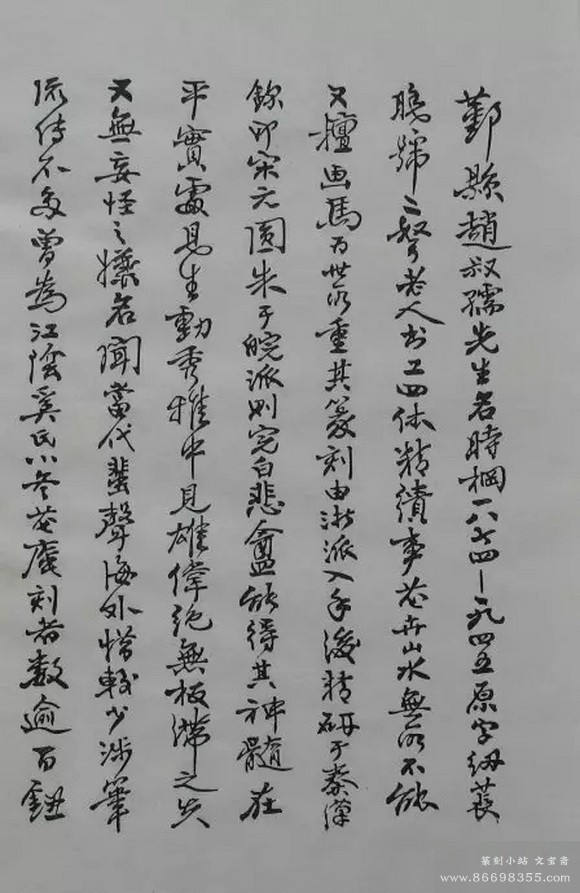 鄞縣趙叔孺先生名時棡一八七四—一九四五原字紉萇
晚號二弩老人书工四体精繢事花卉山水無所不能
又擅画馬为世所重其篆刻由浙派入手後精研于秦漢
鉨印宋元圆朱于皖派则完白悲盦能得其神髓在
平實處見生動秀雅中見雄偉絕無板滯之失
又無妄怪之嫌名聞當代蜚聲海外惜較少涉筆
流传不多曾為江陰奚氏小冬花庵刻者數逾百鈕
篆刻小站 文宝斋
www.86698355.com